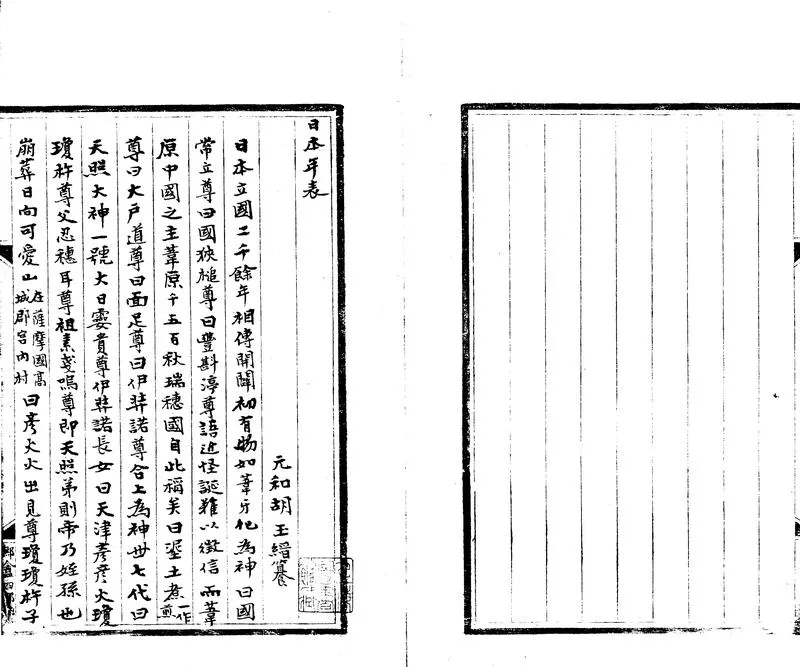 日本年表
元和胡玉縉纂
日本立國二千餘年相傳開闢初有物如葦牙化為神曰國
常立尊曰國狹槌尊曰豐斟渟尊語近怪誕難以徵信而葦
原中國之主葦原千五百秋瑞穗國自此稱矣曰埿土煑一作煎
尊曰大戶道尊曰面足尊曰伊弉諾尊合上為神世七代曰
天照大神一號大日孁貴尊伊弉諾長女曰天津彥彥火瓊
瓊杵尊父忍穗耳尊祖素戔嗚尊即天照弟則帝乃姪孫也
崩葬日向可愛山在薩摩國高城郡宮內村曰彥火火出見尊瓊瓊杵子